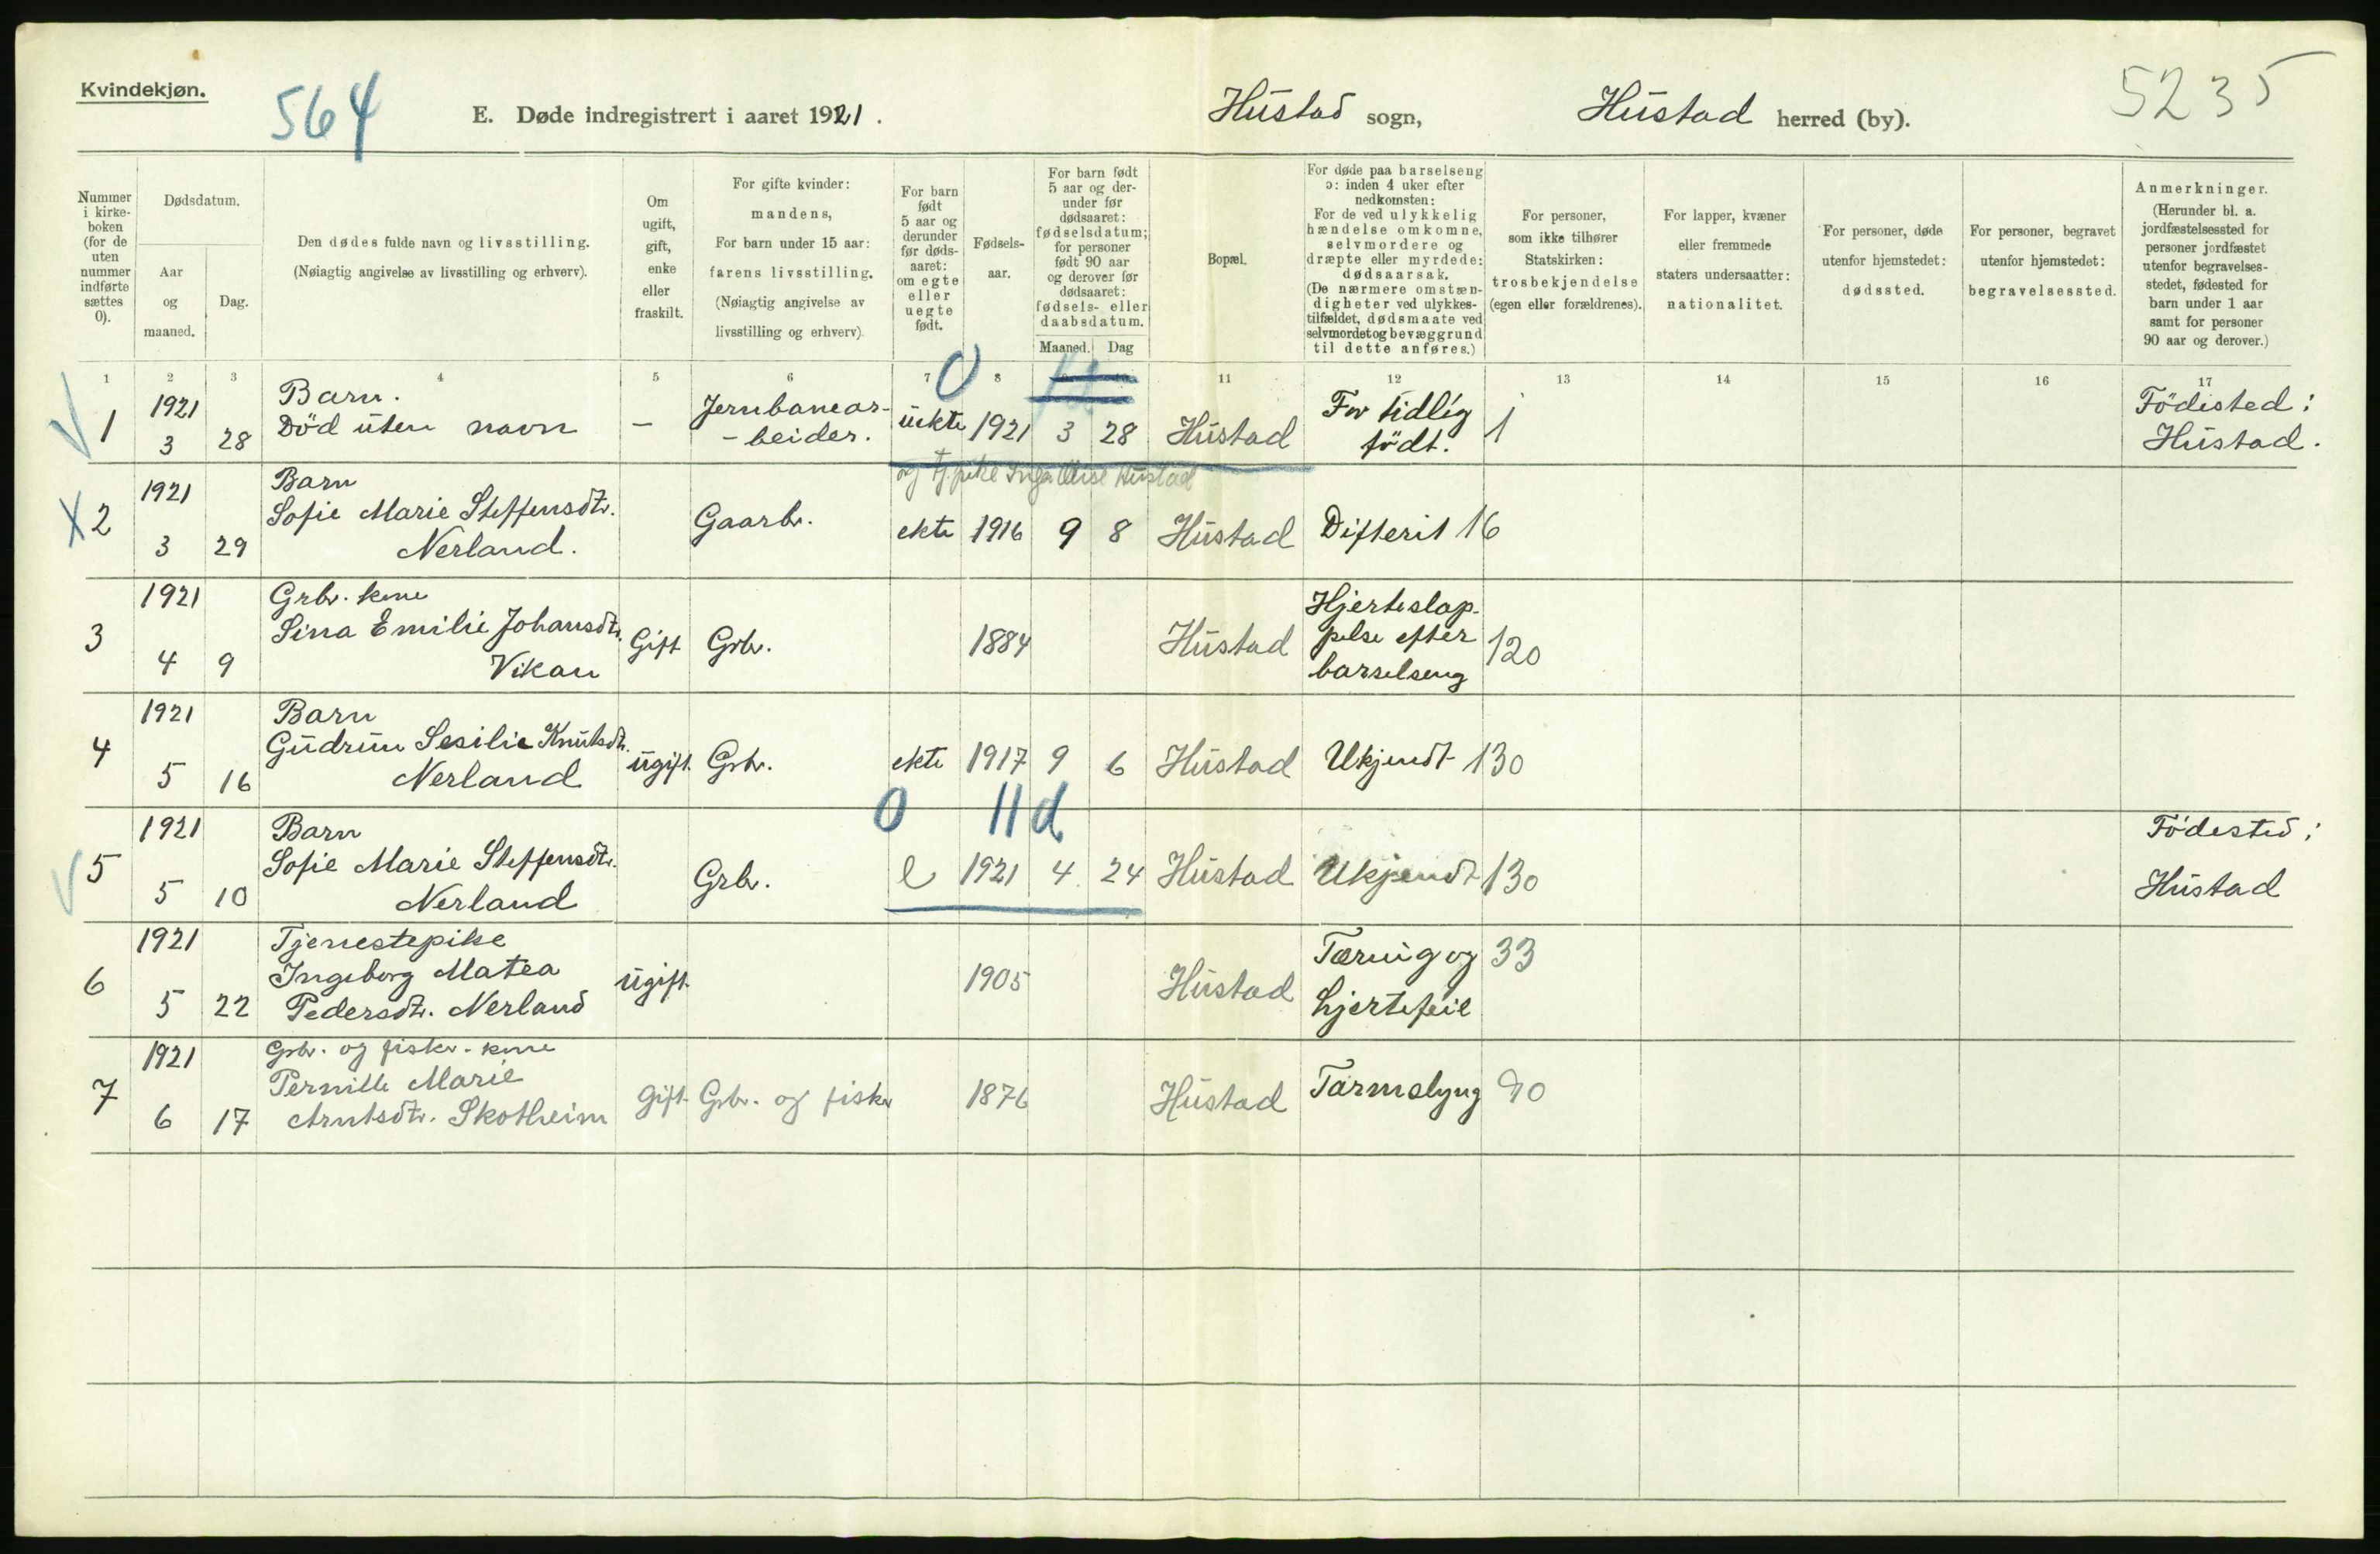 Kvindekjøn.
564
E. Døde indregistrert i aaret 1921.
Hustad sogn,
Hustad herred (by).
5235
Nummer
i kirke-
boken
(for de
uten
nummer
indførte
sættes
0).
Dødsdatum.
Aar
og
maaned.
Dag.
Den dødes fulde navn og livsstilling.
(Nøiagtig angivelse av livsstilling og erhverv).
Om
ugift,
gift,
enke
eller
fraskilt.
For gifte kvinder:
mandens,
For barn under 15 aar:
farens livsstilling.
(Nøiagtig angivelse av
livsstilling og erhverv).
For barn
født
5 aar og
derunder
før døds-
aaret:
om egte
eller
uegte
født.
Fødsels-
aar.
For barn født
5 aar og der-
under før
dødsaaret:
fødselsdatum;
for personer
født 90 aar
og derover før
dødsaaret:
fødsels- eller
daabsdatum.
Maaned. Dag
Bopæl.
For døde paa barselseng
ɔ: inden 4 uker efter
nedkomsten:
For de ved ulykkelig
hændelse omkomne,
selvmordere og
dræpte eller myrdede:
dødsaarsak.
(De nærmere omstæn-
digheter ved ulykkes-
tilfældet, dødsmaate ved
selvmordet og bevæggrund
til dette anføres.)
For personer,
som ikke tilhører
Statskirken:
trosbekjendelse
(egen eller forældrenes).
For lapper, kvæner
eller fremmede
staters undersaatter:
nationalitet.
For personer, døde
utenfor hjemstedet:
dødssted.
For personer, begravet
utenfor hjemstedet:
begravelsessted.
Anmerkninger.
(Herunder bl. a.
jordfæstelsessted for
personer jordfæstet
utenfor begravelses-
stedet, fødested for
barn under 1 aar
samt for personer
90 aar og derover.)
1 2 3 4 5 6 7 8 11 12 13 14 15 16 17
0
1 1921 3 28
Barn.
Död uten navn
-
Jernbanear-
-beider.
uekte 1921 3 28 Hustad
For tidlig
födt.
1
Födested:
Hustad.
og tj.pike Inga Hustad
X 2 1921 3 29
Barn
Sofie Marie Steffensdtr.
Nerland.
Gaarbr. ekte 1916 9 8 Hustad Difterit 16
3 1921 4 9
Grbr. kone
Sina Emilie Johansdtr.
Vikan
Gift Grbr. 1884 Hustad
Hjerteslap-
pelse efter
barselseng
120
4 1921 5 16
Barn
Gudrun Sesilie Knutsdtr.
Nerland
ugift. Grbr. ekte 1917 9 6 Hustad Ukjendt 130
0 11 d
5 1921 5 10
Barn
Sofie Marie Steffensdtr.
Nerland
Grbr. e 1921 4 24 Hustad Ukjendt 130
Födested:
Hustad
6 1921 5 22
Tjenestepike
Ingeborg Matea
Pedersdtr. Nerland
ugift. 1905 Hustad
Tæring og
hjertefeil
33
7 1921 6 17
Grbr. og fisker-kone
Pernille Marie
Arntsdtr. Skotheim
gift Grbr. og fisker 1876 Hustad Tarmslyng 90